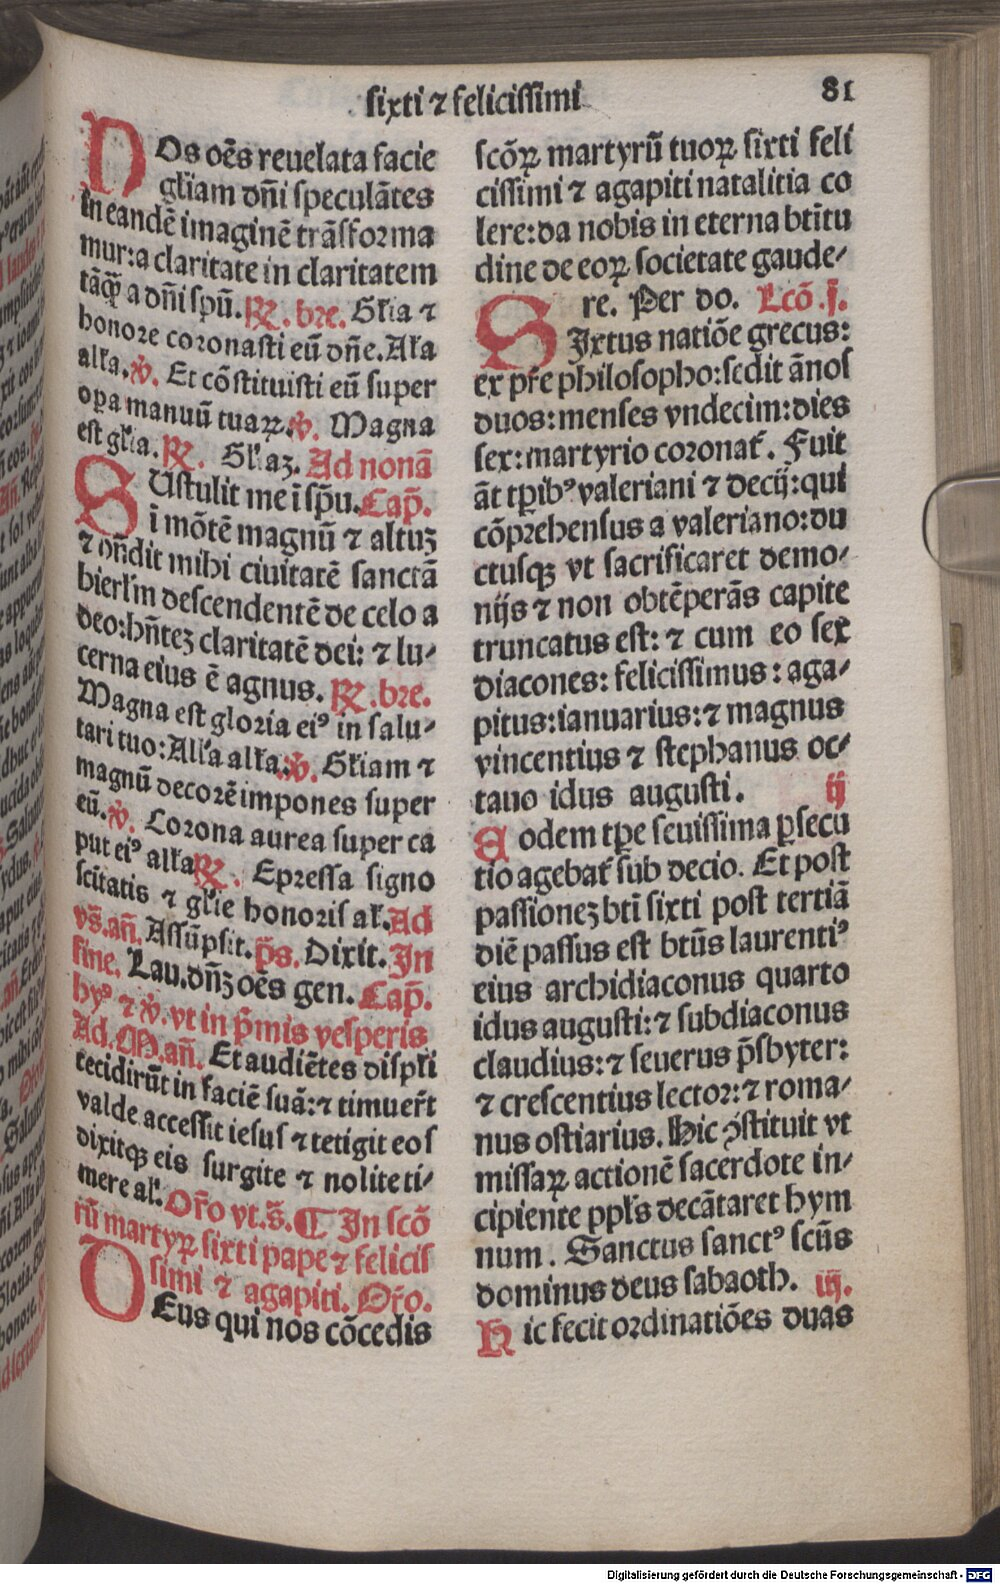 sixti ⁊ felicissimi
81
NOs oēs reuelata facie
gl'iam dn̄i speculātes
in eandē imaginē trāsforma
mur: a claritate in claritatem
tāqꝫ a dn̄i spū. R̄. bre. Gl'ia ⁊
honore coronasti eū dn̄e. Al'a
all'a. v̄. Et cōstituisti eū super
oꝑa manuū tuaꝝ. v̄. Magna
est gl'ia. R̄. Gl'iaꝫ. Ad nonā
SUstulit me ī sp̄u. Cap̄.
ī mōtē magnū ⁊ altuꝫ
⁊ on̄dit mihi ciuitatē sanctā
hierl'm descendentē de celo a
deo: hn̄teꝫ claritatē dei: ⁊ lu-
cerna eius ē agnus. R̄. bre.
Magna est gloria ei⁹ in salu-
tari tuo: All'a all'a. v̄. Gl'iam ⁊
magnū decorē impones super
eū. v̄. Corona aurea super ca
put ei⁹ all'a R̄. Expressa signo
scītatis ⁊ gl'ie honoris al'. Ad
vs̄. an̄. Assūpsit. p̄s. Dixit. In
fine. Lau. dn̄ꝫ oēs gen. Cap̄.
hy⁹ ⁊ v̄. vt in p̄mis vesperis
Ad. M. an̄. Et audiētes discip'li
cecidirūt in faciē suā: ⁊ timuer̄t
valde accessit iesus ⁊ tetigit eos
dixitqꝫ eis surgite ⁊ nolite ti-
mere al'. Or̄o vt. s̄. ¶ In scō
rū martyꝝ sixti pape ⁊ felicis
simi ⁊ agapiti. Or̄o.
DEus qui nos cōcedis
scōꝝ martyrū tuoꝝ sixti feli
cissimi ⁊ agapiti natalitia co
lere: da nobis in eterna btītu
dine de eoꝝ societate gaude-
re. Per do. Lcō. j̄.
SIxtus natiōe grecus:
ex pr̄e philosopho: sedit ānos
duos: menses vndecim: dies
sex: martyrio coronat̄. Fuit
āt tꝑib⁹ valeriani ⁊ decij: qui
cōprehensus a valeriano: du
ctusqꝫ vt sacrificaret demo-
nijs ⁊ non obtēperās capite
truncatus est: ⁊ cum eo sex
diacones: felicissimus: aga-
pitus: ianuarius: ⁊ magnus
vincentius ⁊ stephanus oc-
tauo idus augusti. ij
Eodem tꝑe seuissima ꝑsecu
tio agebat̄ sub decio. Et post
passioneꝫ bti̅ sixti post tertiā
diē passus est bt̄us laurenti⁹
eius archidiaconus quarto
idus augusti: ⁊ subdiaconus
claudius: ⁊ seuerus p̄sbyter:
⁊ crescentius lector: ⁊ roma-
nus ostiarius. Hic ꝯstituit vt
missaꝝ actionē sacerdote in-
cipiente ppl's decātaret hym
num. Sanctus sanct⁹ scūs
dominus deus sabaoth. iij.
Hic fecit ordinatiōes duas
Digitalisierung gefördert durch die Deutsche Forschungsgemeinschaft - DFG